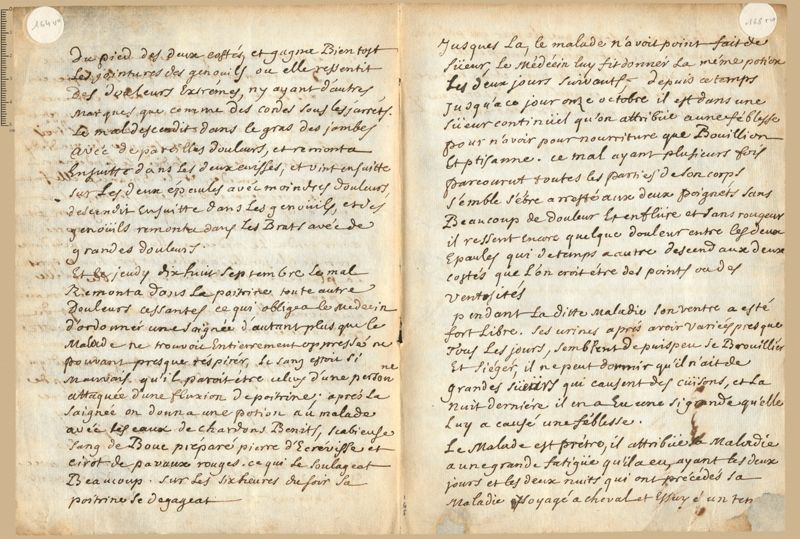 164 vo
du pied des deux costés, et gagna Bien tost
Les jointures des genoüils ou elle ressentit
Des douleurs Extremes, n'y ayant d'autres
Marques que comme des cordes sous les jarrets.
Le mal descendit dans le gras des jambes
avec de pareilles douleurs, et remonta
Ensuitte dans les deux cuisses, et vint ensuitte
sur Les deux epaules avec moindres Douleurs,
descendit Ensuitte dans Les genoüils, et des
genoüils remonta dans Les Bras avec de
grandes douleurs.
Et Le jeudy dix huit septembre Le mal
Remonta dans La poitrine, toute autre
Douleurs cessantes ce qui obligea Le Medecin
D'ordonner une saignée d'autant plus que le
Malade se trouvoit Entierrement oppressé ne
pouvant presque respirer, Le sang estoit si
Mauvais qu'il paroit être celuy d'une personne
attaquée d'une fluxion de poitrine: apres La
saignée on donna une potion au malade
avec Les eaux de chardons Benits, scabieuse
sang de Bouc préparé pierre d'Ecrévisse et
cirot de pavaux rouges. ce qui Le soulageat
Beaucoup. sur Les six heures du soir sa
poitrine se degageat
165 ro
Jusques La, le malade n'avoit point fait de
süeur, Le Médecin luy fit donner La même potion
Les deux jours suivants, depuis ce tamps
Jusqu'a ce jour onze octobre il est dans une
süeur continüel qu'on attribüe a une féblesse
pour n'avoir pour nourriture que Bouillion
Et ptisanne. ce mal ayant plusieurs fois
parcourut toutes les parties de son corps
s'émble s'être arresté aux deux poignets sans
Beaucoup de douleur Et enflüre et sans rougeur
il ressent Encore quelque douleur entre les deux
Epaules qui de tamps a autre descend aux deux
costés que L'on croit être des points ou des
Ventosités
pendant La ditte Maladie son ventre a esté
fort Libre. ses urines après avoir variées presque
Tous Les jours, semblent depuis peu se Broüillier
Et sieger, il ne peut dormir qu'il n'ait de
grandes süeurs qui causent des cuisons, et La
nuit derniére il en a Eu une si grande qu'elle
Luy a causé une féblesse.
Le Malade est prêtre, il attribüe sa Maladie
a une grande fatigüe qu'il a eu, ayant Les deux
jours et les deux nuits qui ont précédés sa
Maladie voyagé a cheval et Essuyé un tem
165